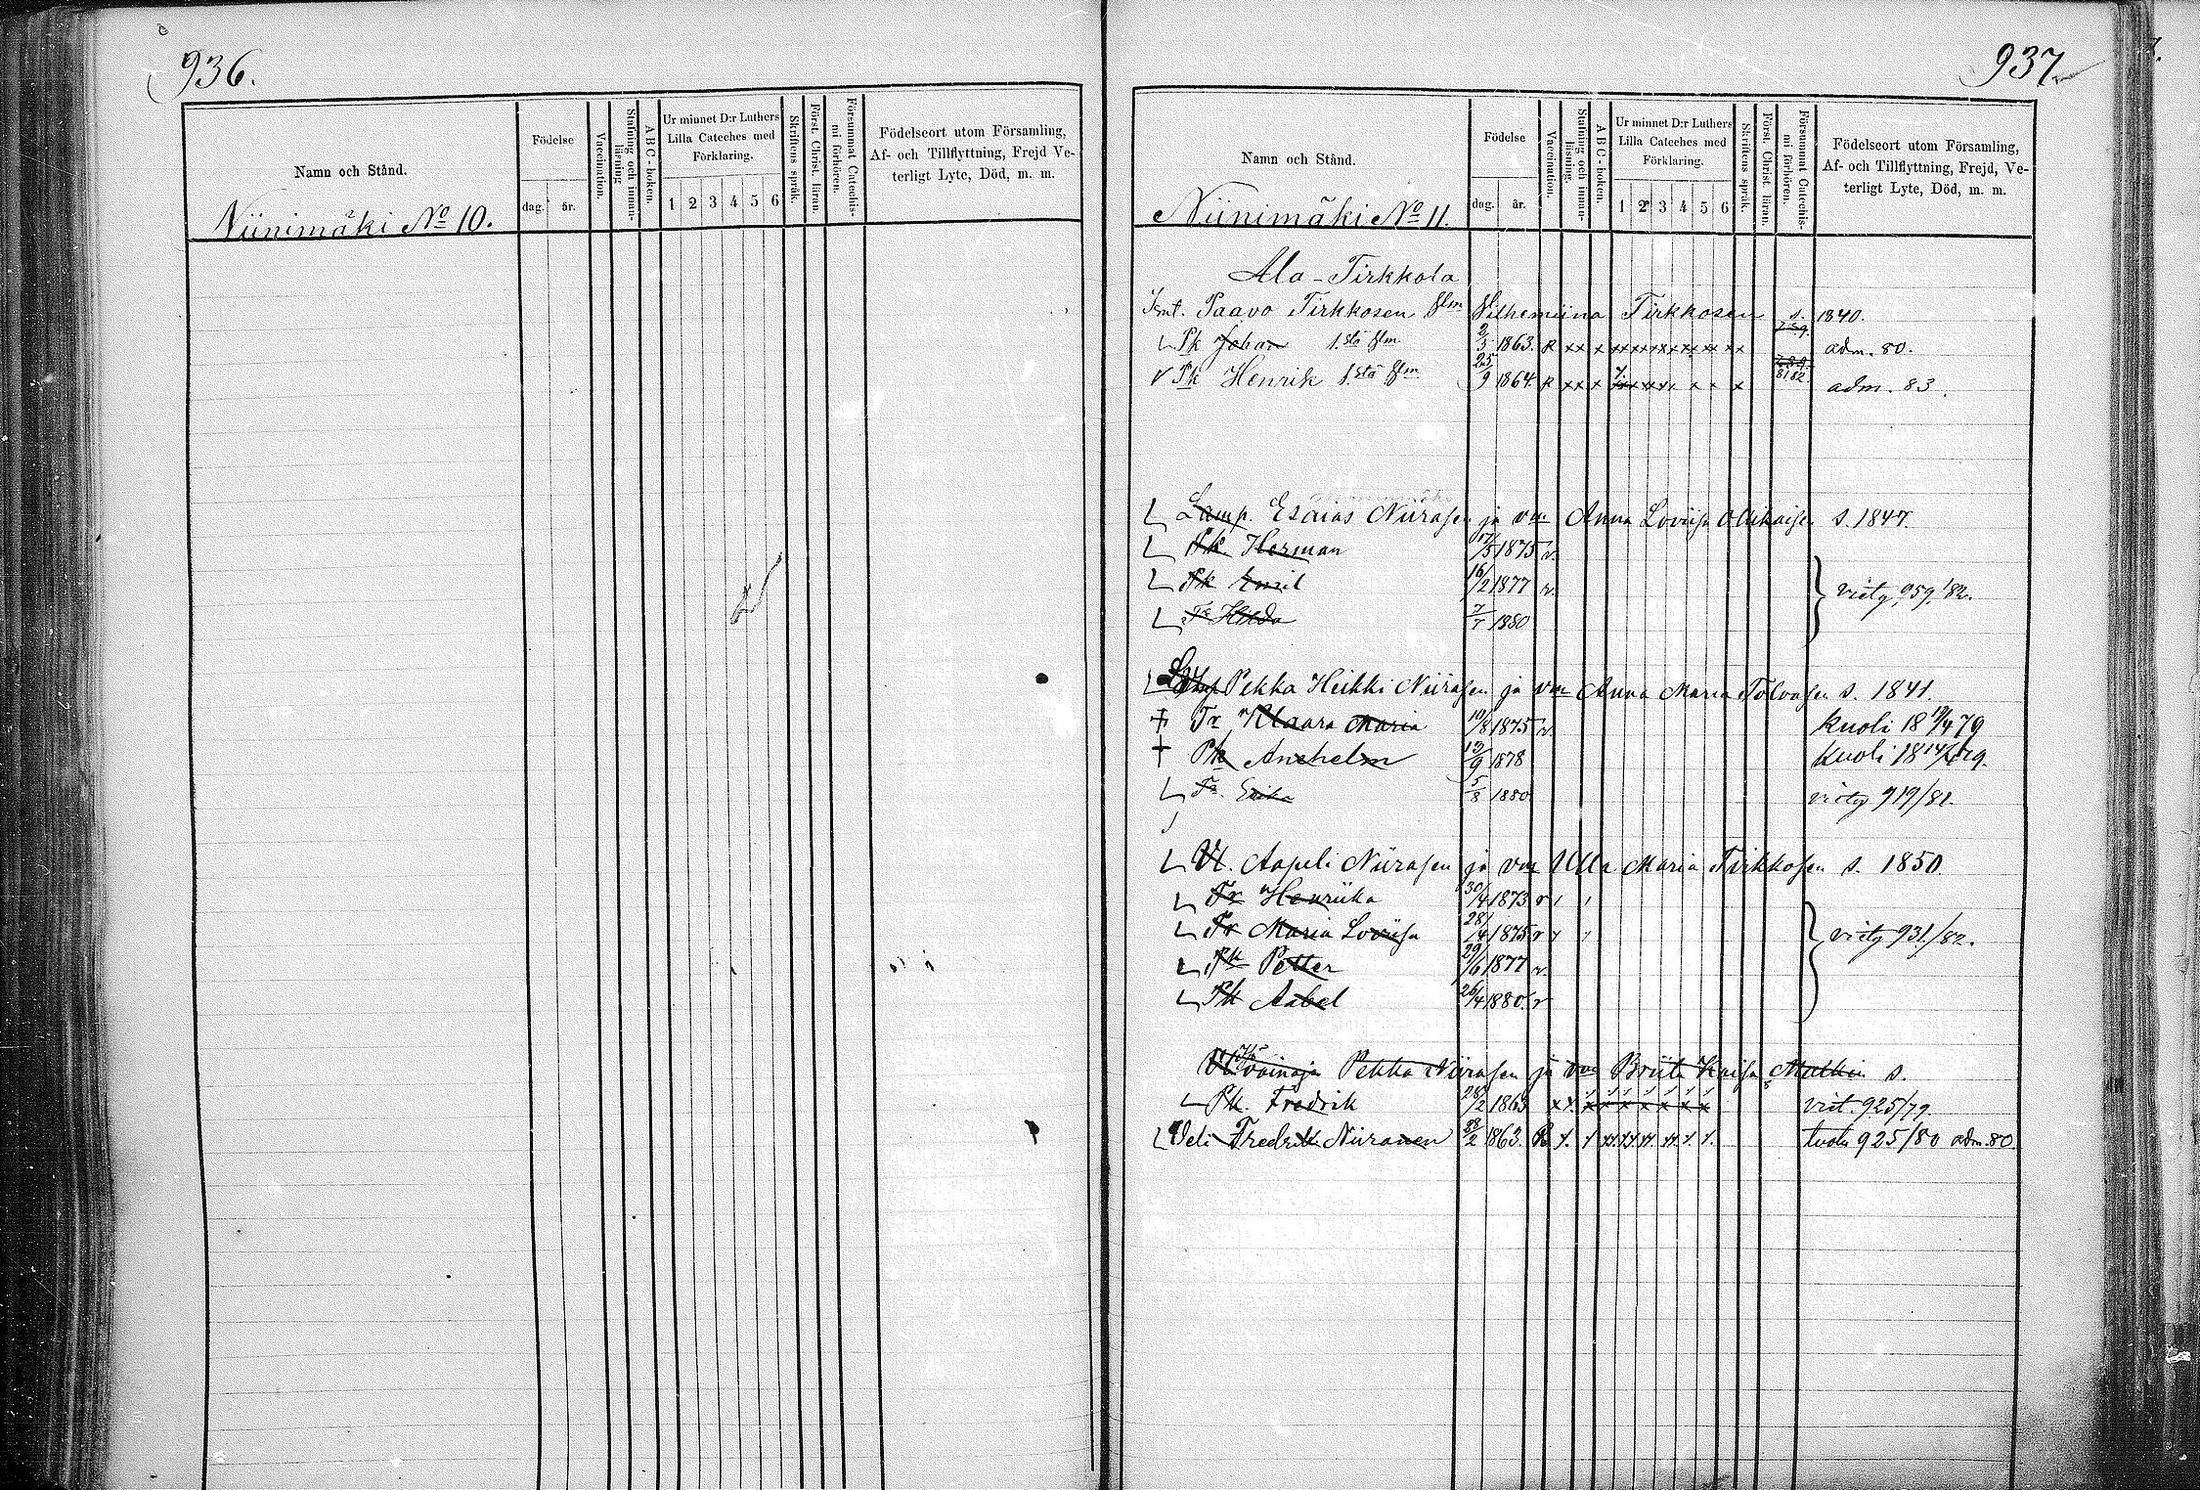 936.
Namn och Stånd.
Födelse
dag.
år.
Vaccination.
Stafning och innan-
läsning
A B C - boken.
Ur minnet D:r Luthers
Lilla Cateches med
Förklaring.
1 2 3 4 5 6
Skriftens språk.
Först. Christ. läran.
Försummat Catechis-
mi förhören.
Födelseort utom Församling,
Af- och Tillflyttning, Frejd Ve-
terligt Lyte, Död, m. m.
Niinimäki No 10.
937
Namn och Stånd.
Födelse
dag.
år.
Vaccination.
Stafning och innan-
läsning.
A B C - boken.
Ur minnet D:r Luthers
Lilla Cateches med
Förklaring.
1 2 3 4 5 6
Skriftens språk.
Först. Christ. läran.
Försummat Catechis-
mi förhören.
Födelseort utom Församling,
Af- och Tillflyttning, Frejd, Ve-
terligt Lyte, Död, m. m.
Niinimäki No 11.
Ala-Tirkkola
Paavo Tirkkosen flm Vilhemiina Tirkkosen s. 1840.
Pk Johan 1.stä flm. 1863. R xx x adm. 80.
Pk Henrik 1.stä flm 25/9 1864. R xx x 81 82 adm. 83.
Lamp. Esaias Niirasen ja vm Anna Loviisa s. 1847.
Pk. Herman 17/5 1875 v.
Pk Emil 16/2 1877 v. viety 959/82.
Tr Hilda 1880
Pekka Heikki Niirasen ja vm Anna Maria Tolvasen s. 1841.
Tr Klaara Maria 10/8 1875 v. kuoli 18 19/4 79
Pk Anshelm 13/9 1878 kuoli 18 14/4 79.
Tr. Erika 5/8 1880 viety 919/82.
Vl. Aapeli Niirasen ja vm Ulla Maria Tirkkosen s. 1850.
Tr Henriika 30/4 1873 v
Tr Maria Loviisa 28/4 1875 v viety 931/82.
Pk Petter 29/6 1877 v.
Pk Aabel 26/4 1880. v
Pekka Niirasen ja vm Briita Kaisa s.
Pk. Fredrik 28/2 1863 viet. 925/79.
Veli Fredrik Niiranen 28/2 1863. R tuotu 925/80 adm. 80.